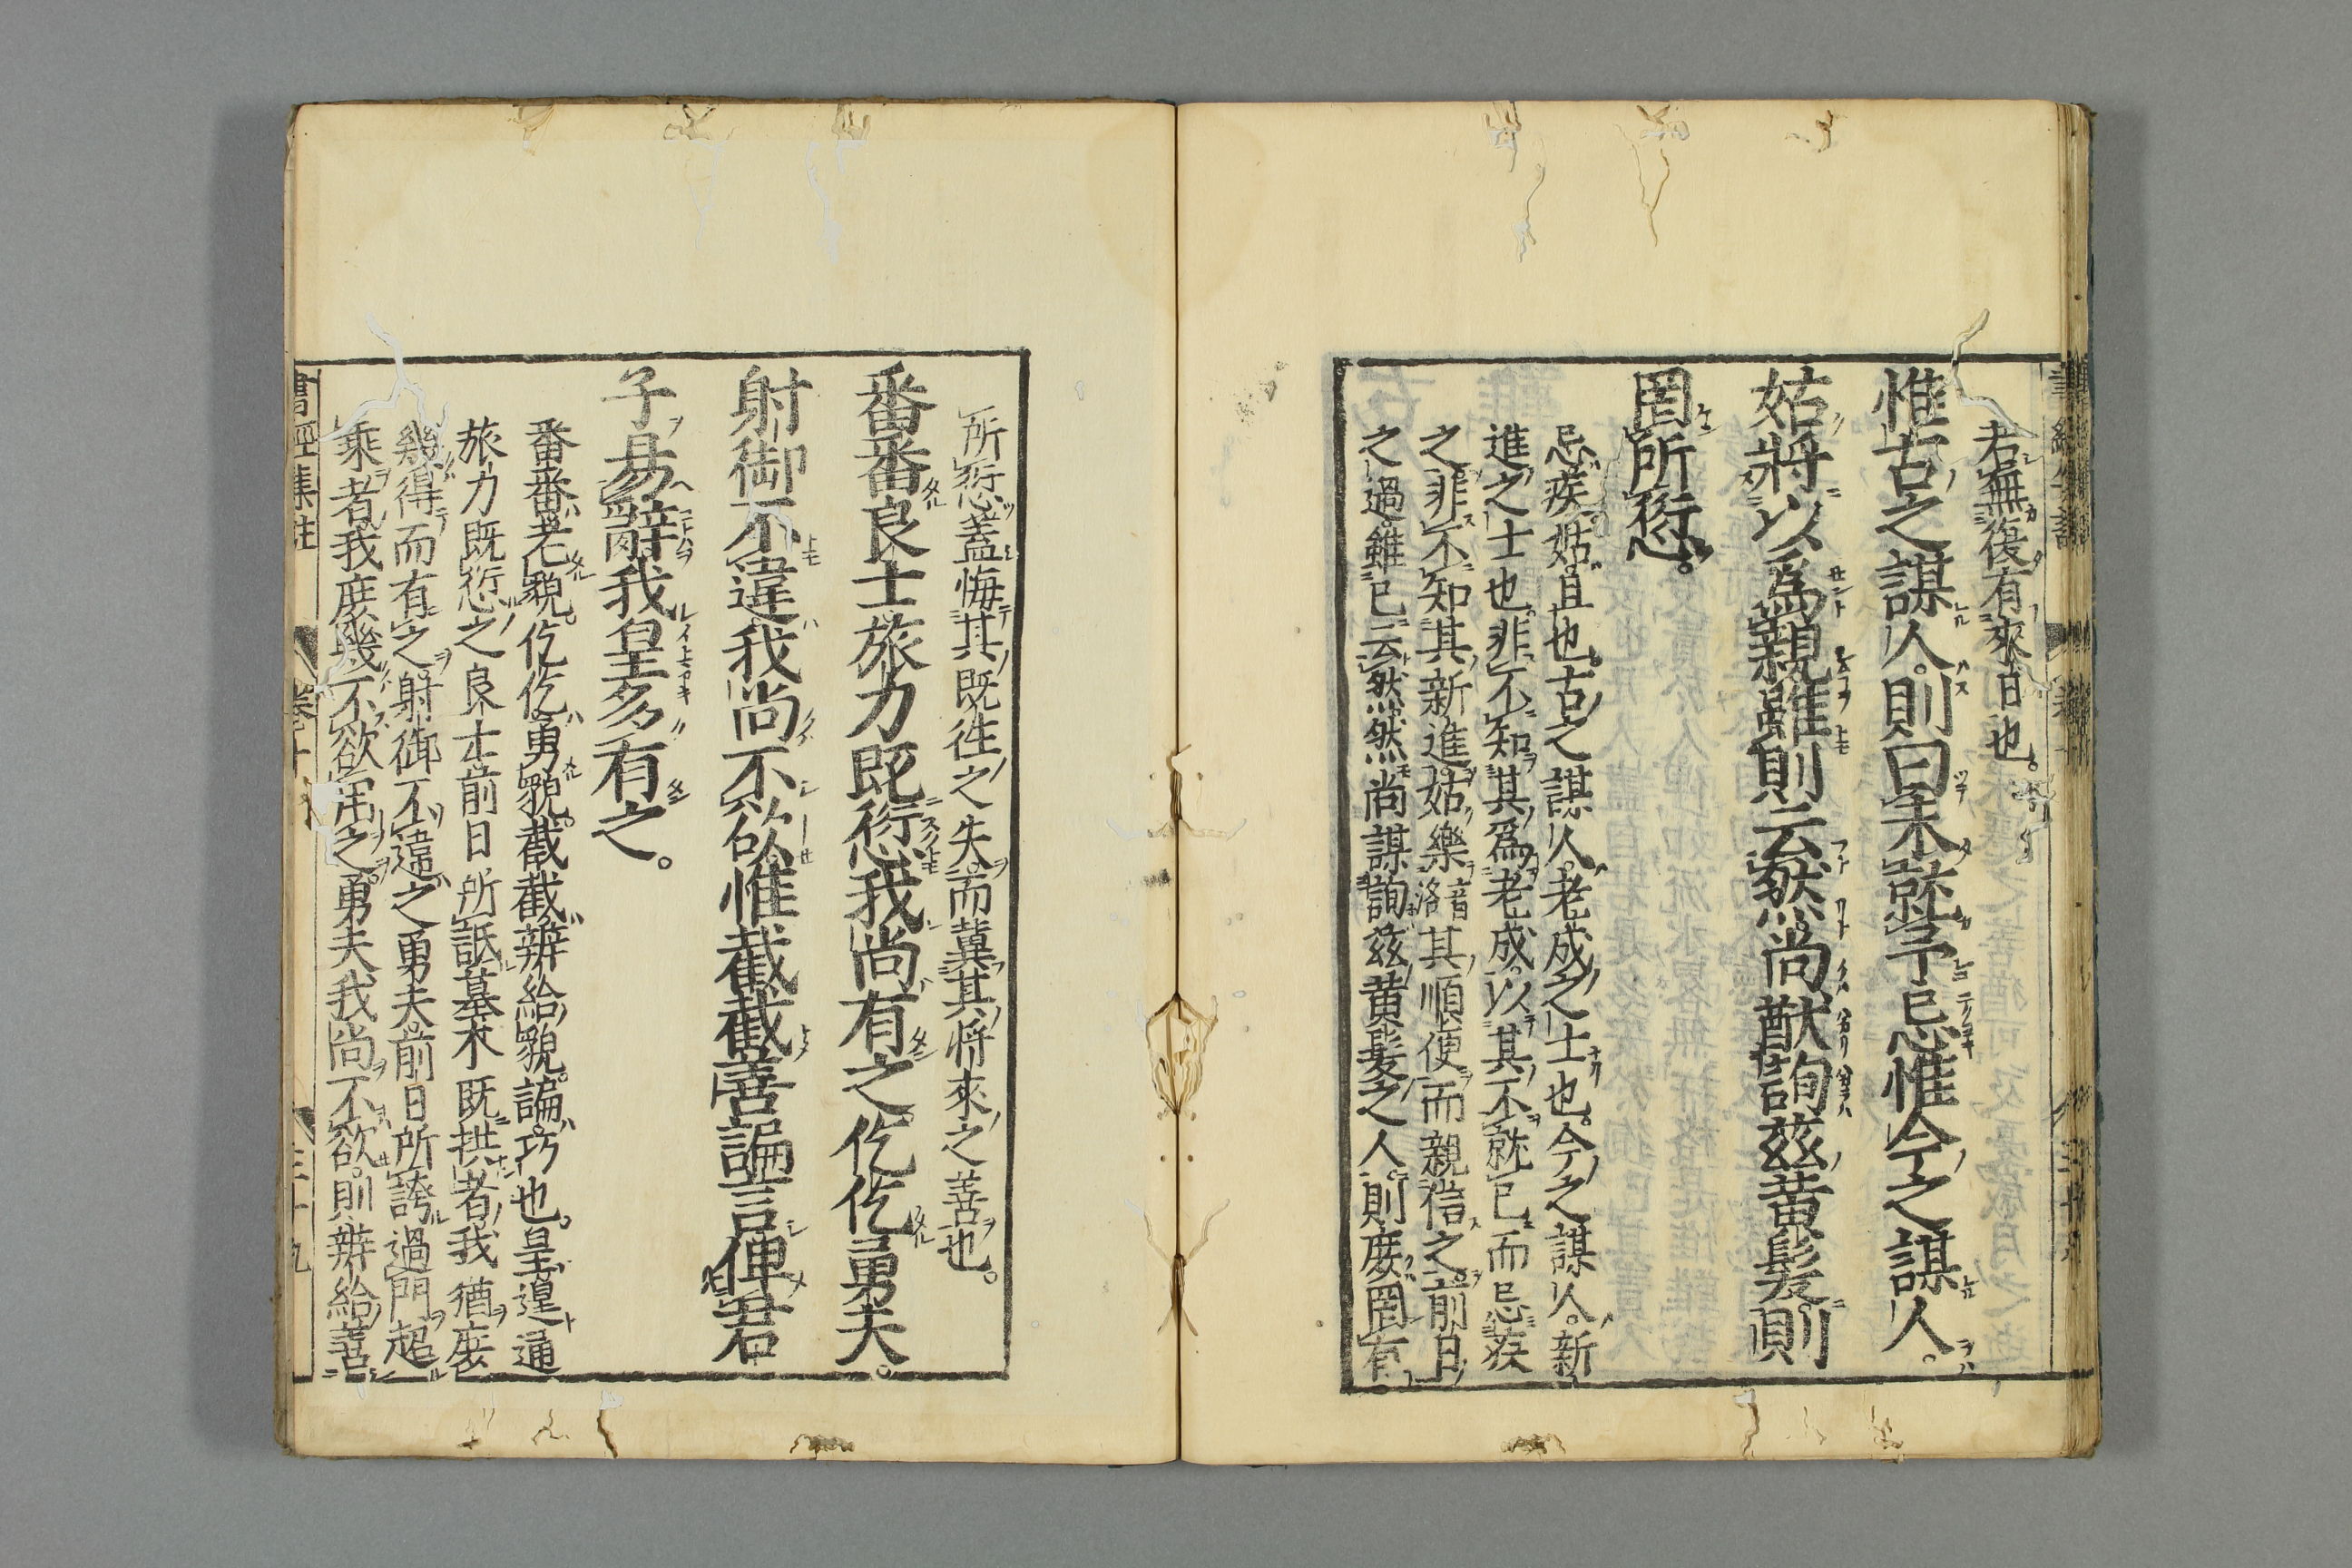 若無復有來日也。
惟古之謀人。則曰未就予忌惟今之謀人。
姑將以爲親雖則云然尚猷詢茲黄髮則
罔所愆。
忌疾姑且也。古之謀人。老成之士也。今之謀人。新
進之士也。非不知其爲老成。以其不就已而忌疾
之。非不知其新進姑樂音洛其順便而親信之。前日
之過雖已云然然尚謀詢茲黄髮之人。則庶罔有
所愆。蓋悔其既往之失。而冀其将來之善也。
番番良士旅力既愆我尚有之。仡仡勇夫。
射御不違我尚不欲惟截截善諞言俾君
子易辭我皇多有之。
番番老貌。仡仡勇貌。截截辨給貌。諞巧也。皇遑通
旅力既愆之良士前日所詆墓木既拱者。我猶庶
幾得而有之射御不違之勇夫。前日所誇過門超
乘者我庶幾不欲用之。勇夫我尚不欲。則辨給善
書經集註 卷十 三十九